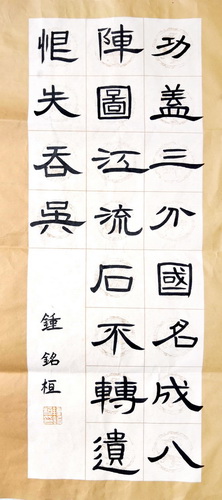 功蓋三分國名成八
陣圖江流石不轉遺
恨失吞吳
鍾銘桓